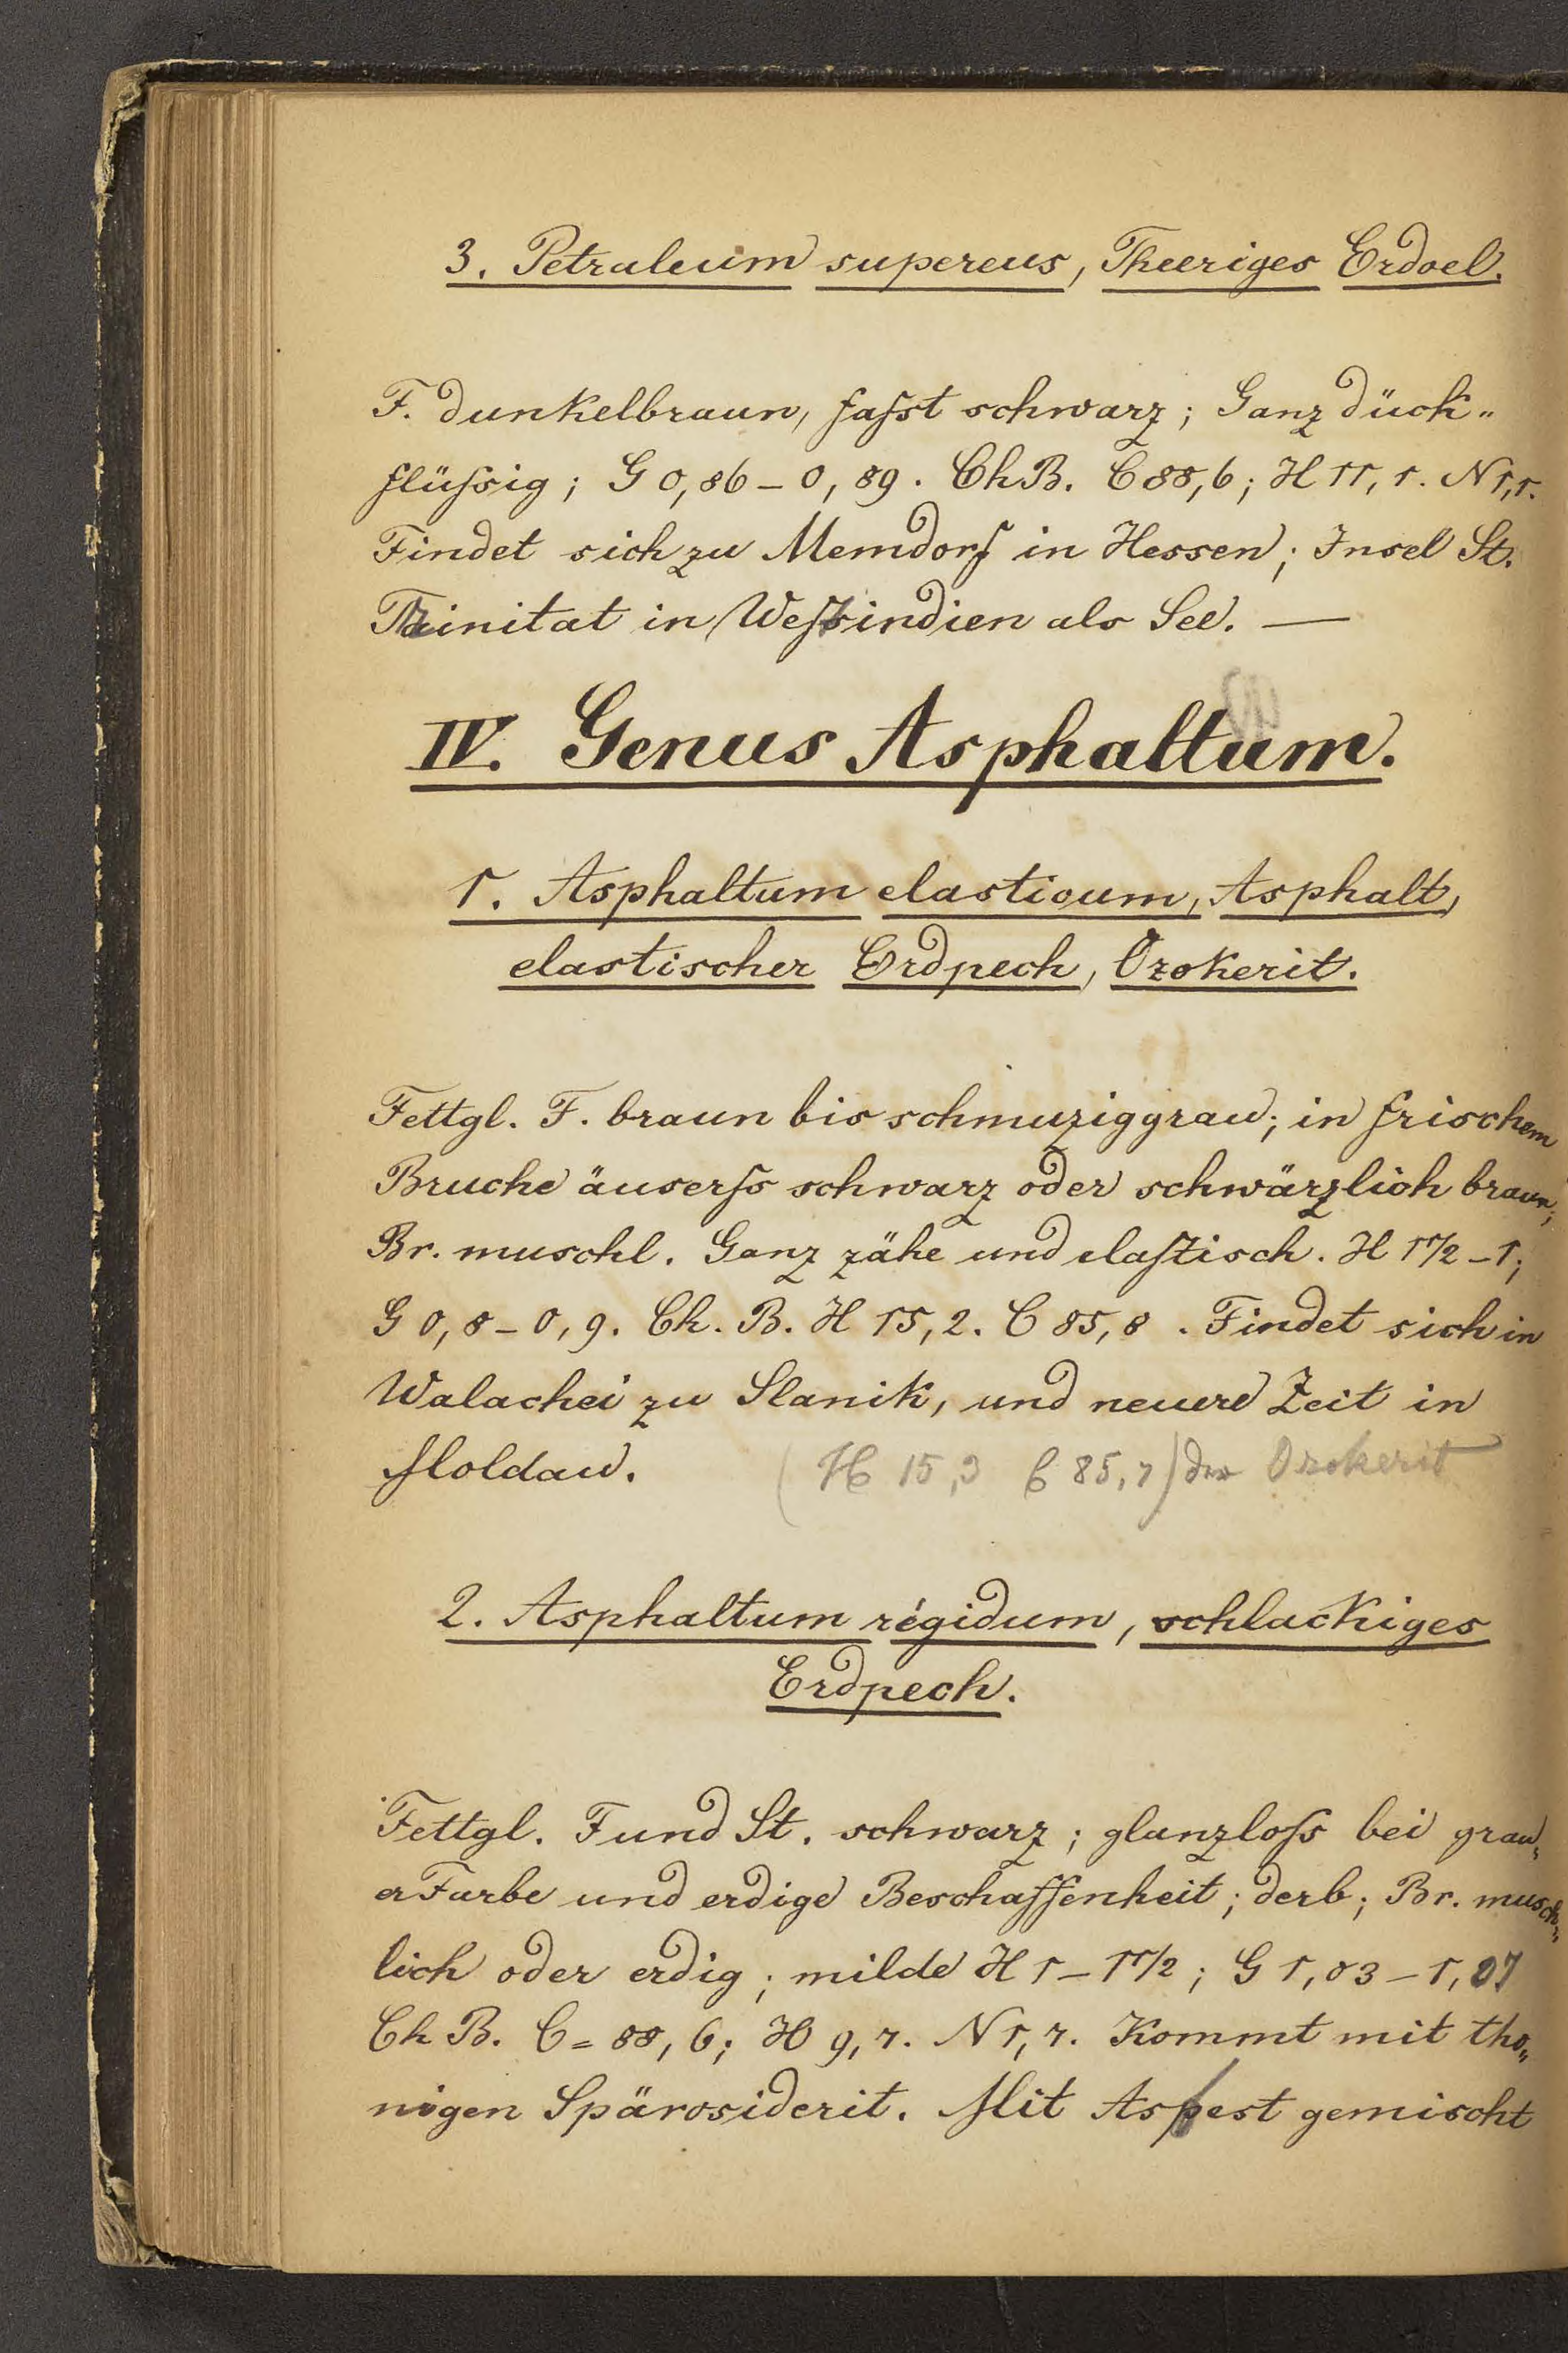 3. Petraleum supereus, Theeriges Erdoel.
F. dunkelbraun, faſst schwarz; Ganz dück„
flüſsig; G 0,86 – 0,89. Ch B. C 88,6; H 11,1. N 1,1.
Findet sich zu Memdorf in Hessen; Insel St.
Trinitat in Weſtindien als See. —
IV. Genus Asphaltum.
1. Asphaltum elasticum, Asphalt,
elastischer Erdpech, Ozokerit.
Fettgl. F. braun bis schmuziggrau; in frischem
Bruche äuserſs schwarz oder schwärzlich braun;
Br. muschl. Ganz zähe und elaſtisch. H 1 1/2 – 1;
G 0,8 – 0,9. Ch. B. H 15,2. C 85,8. Findet sich in
Walachei zu Slanik, und neuere Zeit in
Moldau. (H 15,3 C 85,7) der Ozokerit
2. Asphaltum régidum, schlackiges
Erdpech.
Fettgl. F und St. schwarz; glanzloſs bei grau„
er Farbe und erdige Beschaffenheit; derb; Br. musch„
lich oder erdig; milde H 1 – 1 1/2; G 1,03 – 1,07
Ch B. C = 88,6; H 9,7. N 1,7. Kommt mit tho„
nigen Spärosiderit. Mit Asbest gemischt